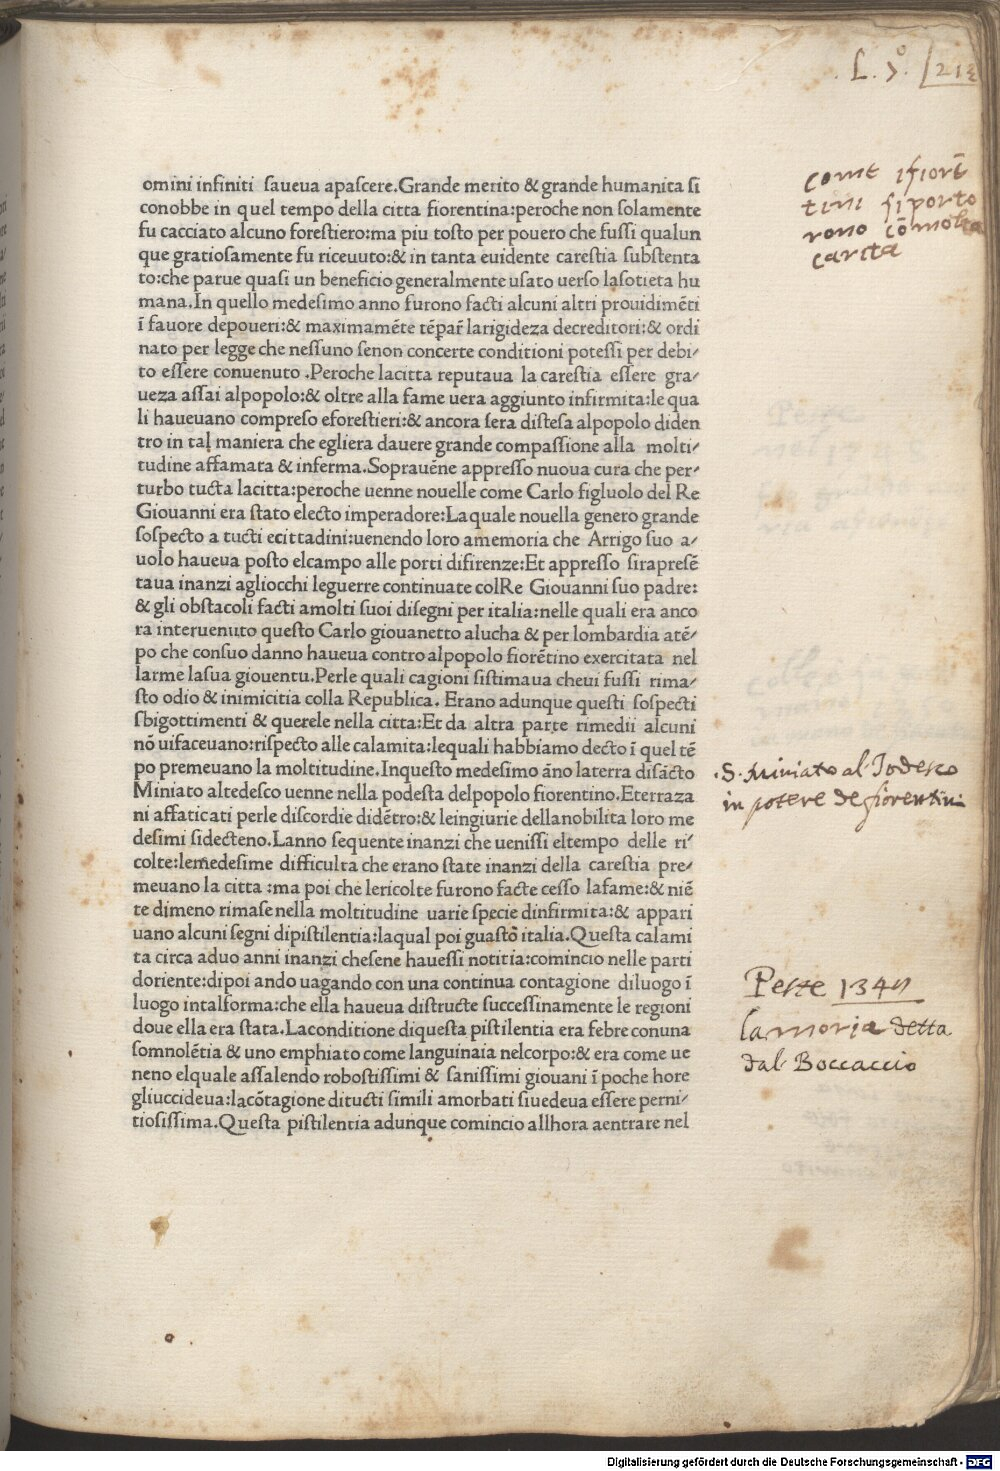 L. 7°. 213
omini infiniti ſaueua apaſcere.Grande merito & grande humanita ſi
conobbe in quel tempo della citta fiorentina:peroche non ſolamente
fu cacciato alcuno foreſtiero:ma piu toſto per pouero che fuſſi qualun
que gratioſamente fu riceuuto:& in tanta euidente careſtia ſubſtenta
to:che parue quaſi un beneficio generalmente uſato uerſo laſotieta hu
mana.In quello medeſimo anno furono facti alcuni altri prouidimēti
ī fauore depoueri:& maximamēte tēꝑar̄ larigideza decreditori:& ordi
nato per legge che neſſuno ſenon concerte conditioni poteſſi per debi/
to eſſere conuenuto .Peroche lacitta reputaua la careſtia eſſere gra/
ueza aſſai alpopolo:& oltre alla fame uera aggiunto infirmita:le qua
li haueuano compreſo eforeſtieri:& ancora ſera diſteſa alpopolo diden
tro in tal maniera che egliera dauere grande compaſſione alla molti/
tudine affamata & inferma.Soprauēne appreſſo nuoua cura che per/
turbo tucta lacitta:peroche uenne nouelle come Carlo figluolo del Re
Giouanni era ſtato electo imperadore:Laquale nouella genero grande
ſoſpecto a tucti ecittadini:uenendo loro amemoria che Arrigo ſuo a/
uolo haueua poſto elcampo alle porti difirenze:Et appreſſo ſirapreſē
taua inanzi agliocchi leguerre continuate colRe Giouanni ſuo padre:
& gli obſtacoli facti amolti ſuoi diſegni per italia:nelle quali era anco
ra interuenuto queſto Carlo giouanetto alucha & per lombardia atē/
po che conſuo danno haueua contro alpopolo fiorētino exercitata nel
larme laſua giouentu.Perle quali cagioni ſiſtimaua cheui fuſſi rima/
ſto odio & inimicitia colla Republica. Erano adunque queſti ſoſpecti
ſbigottimenti & querele nella citta:Et da altra parte rimedii alcuni
nō uifaceuano:riſpecto alle calamita:lequali habbiamo decto ī quel tē
po premeuano la moltitudine.Inqueſto medeſimo āno laterra diſācto
Miniato altedesco uenne nella podeſta delpopolo fiorentino.Eterraza
ni affaticati perle diſcordie didētro:& leingiurie dellanobilita loro me
deſimi ſidecteno.Lanno ſequente inanzi che ueniſſi eltempo delle ri/
colte:lemedeſime difficulta che erano ſtate inanzi della careſtia pre/
meuano la citta :ma poi che lericolte furono facte ceſſo lafame:& niē
te dimeno rimaſe nella moltitudine uarie ſpecie dinfirmita:& appari
uano alcuni ſegni dipiſtilentia:laqual poi guaſto italia.Queſta calami
ta circa aduo anni inanzi cheſene haueſſi notitia:comincio nelle parti
doriente:dipoi ando uagando con una continua contagione diluogo ī
luogo intalforma:che ella haueua diſtructe ſucceſſinamente le regioni
doue ella era ſtata.Laconditione diqueſta piſtilentia era febre conuna
ſomnolētia & uno emphiato come languinaia nelcorpo:& era come ue
neno elquale aſſalendo roboſtiſſimi & ſaniſſimi giouani ī poche hore
gliuccideua:lacōtagione ditucti ſimili amorbati ſiuedeua eſſere perni/
tioſiſſima.Queſta piſtilentia adunque comincio allhora aentrare nel
come ifiorē
tini ſi porto
rono cō molta
carita
.S. Miniato al Todesco
in potere de fiorentini
Peste 1347
la moria detta
dal Boccaccio
Digitalisierung gefördert durch die Deutsche Forschungsgemeinschaft - DFG